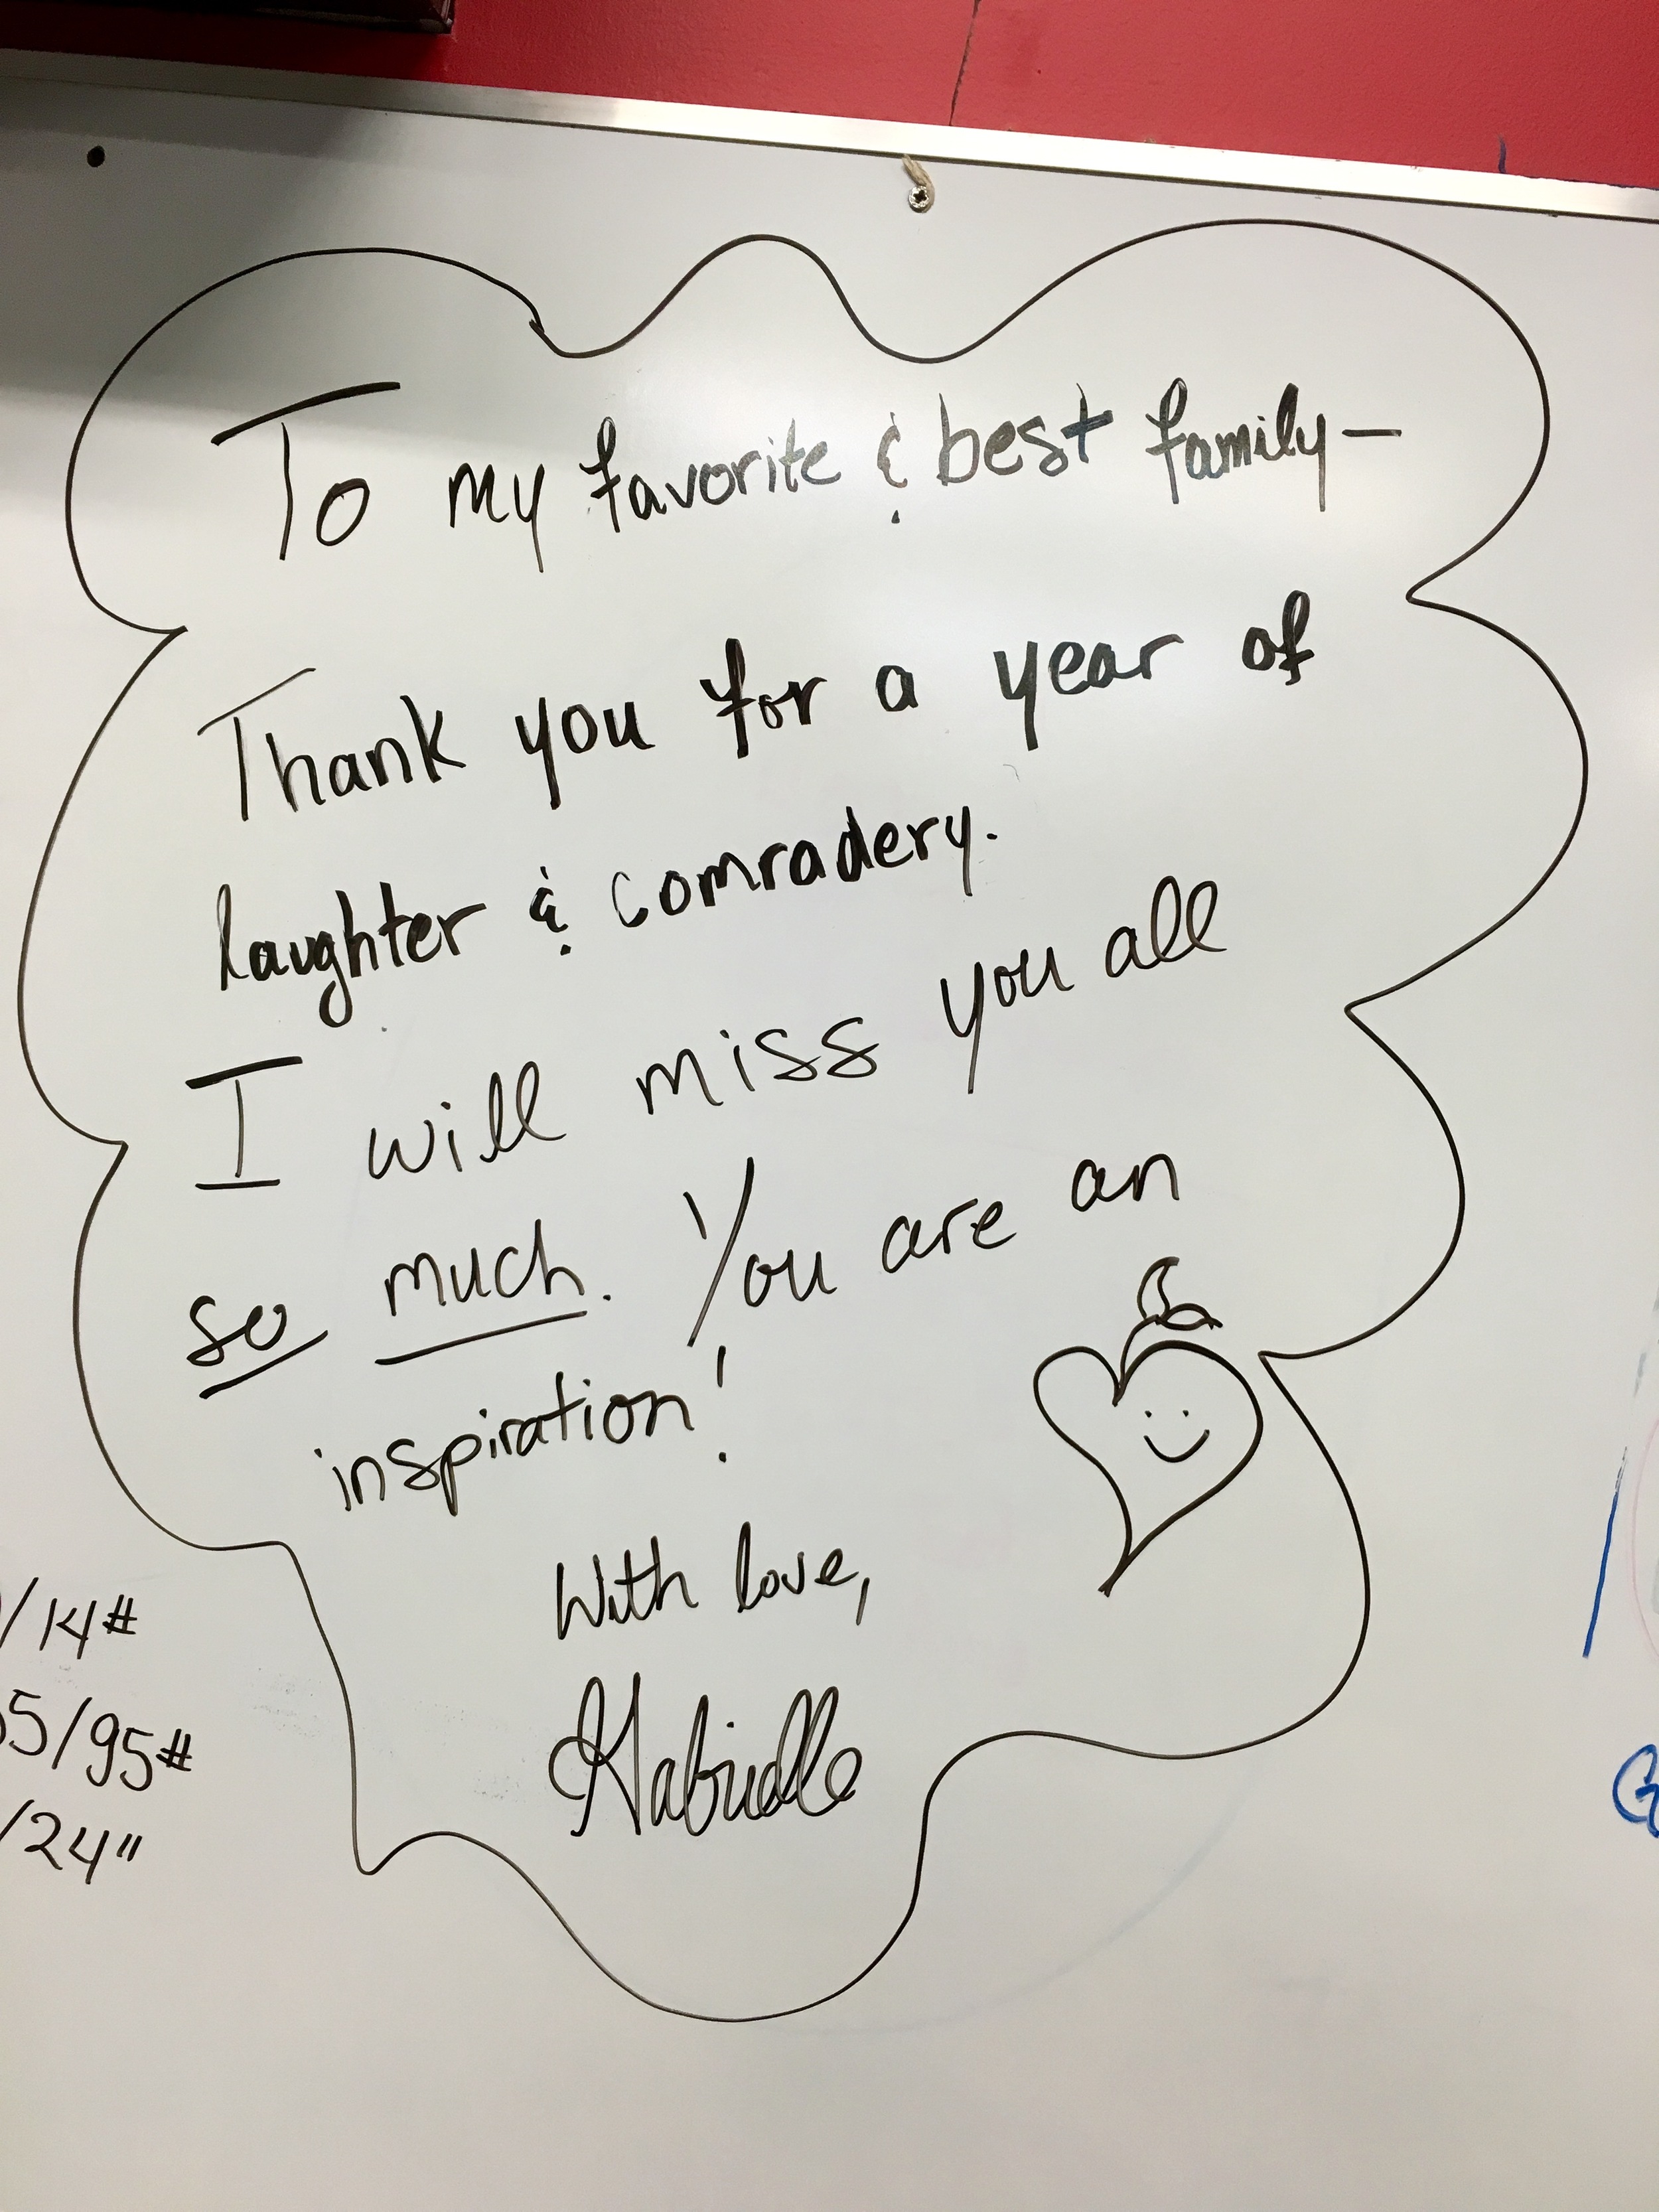 To my favorite & best family —
Thank you for a year of
laughter & comradery.
I will miss you all
so much. You are an
inspiration!
With love,
Gabrielle
/14#
5/95#
/24"